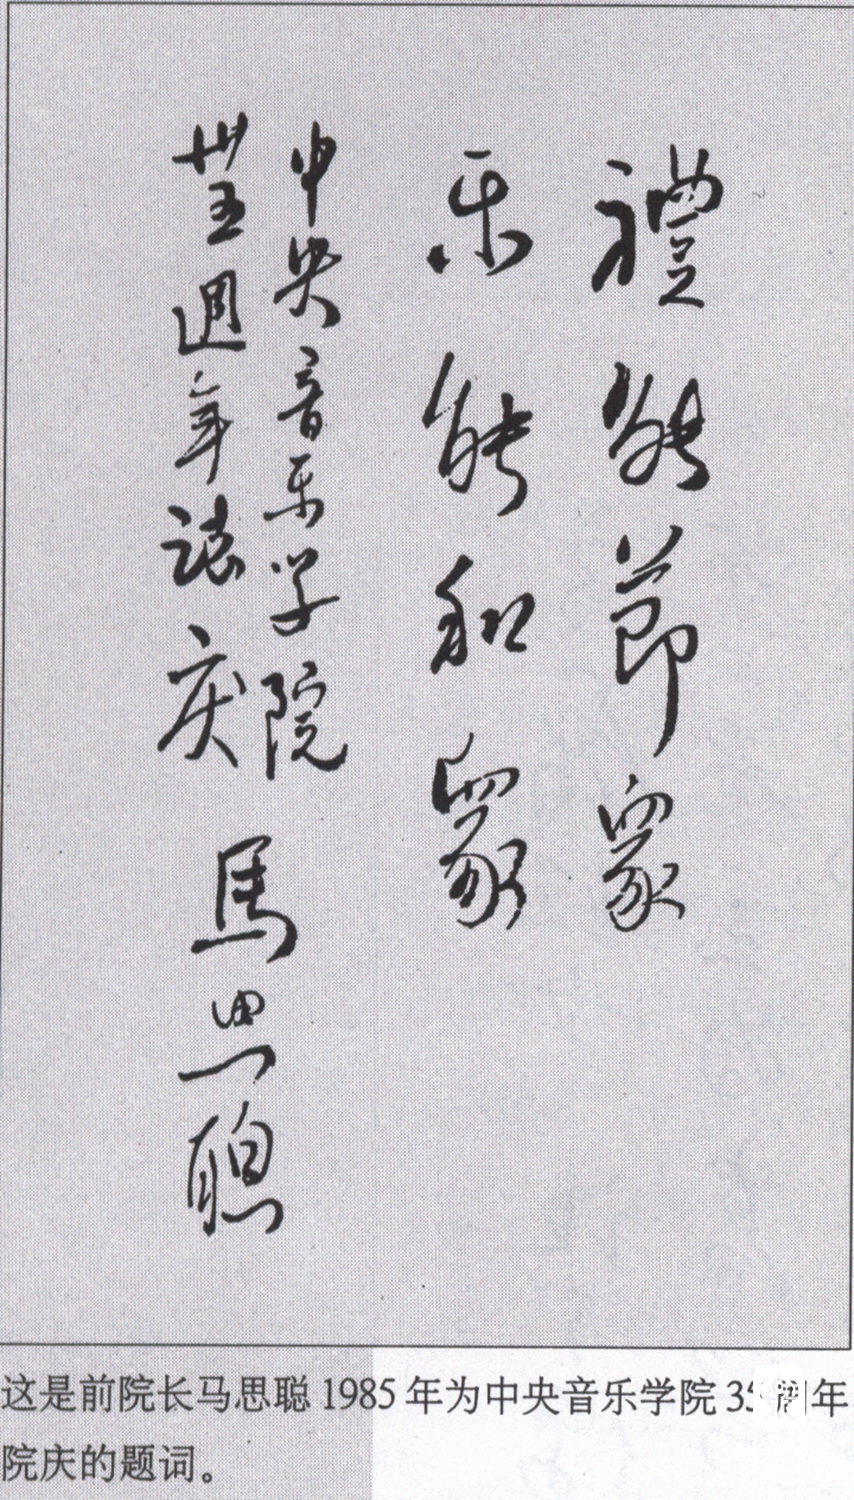 禮能節眾
乐能和眾
中央音乐学院
卅五週年誌庆
馬思聰
这是前院长马思聪 1985 年为中央音乐学院 35周年
院庆的题词。